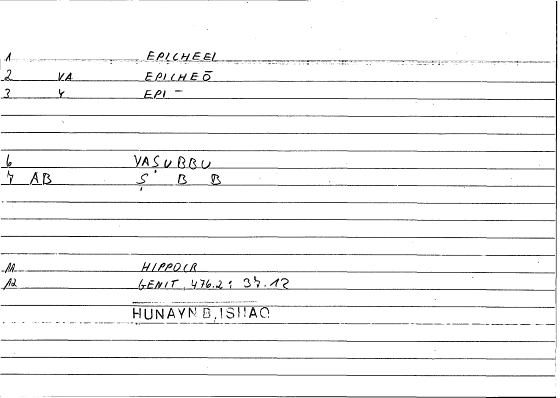 1 EPICHEEL
2 VA EPICHEŌ
3 Y EPI –
6 YAṢUBBU
7 AB Ṣ B B
11 HIPPOCR
12 GENIT, 476.2; 37.12
HUNAYN B.ISHAQ